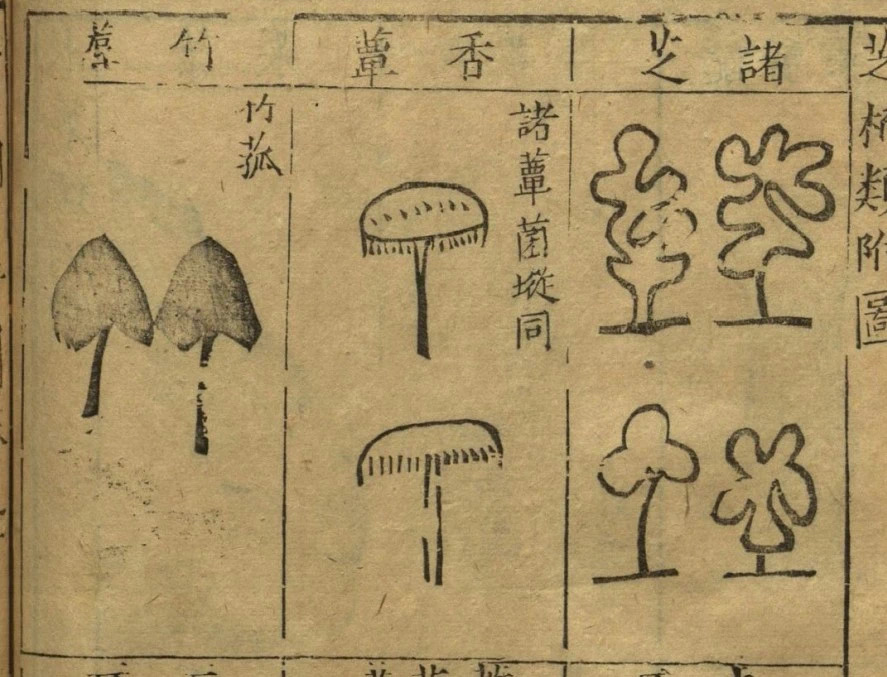 芝栭類附圖
諸芝
香蕈
諸蕈菌㙡同
竹
竹菰